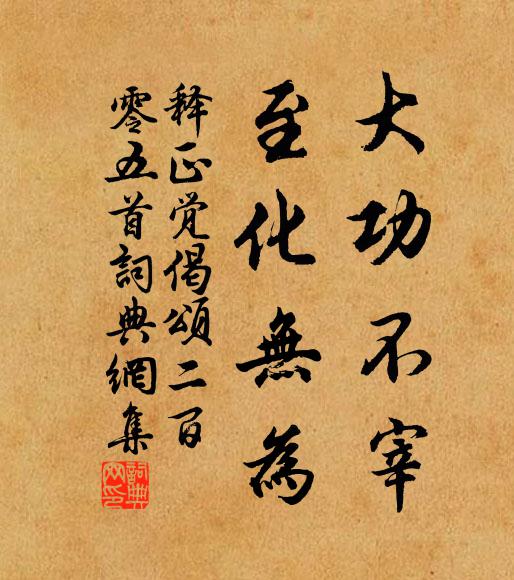 大功不宰
至化無為
释正觉偈頌二百
零五首詞典網集
詞典網印